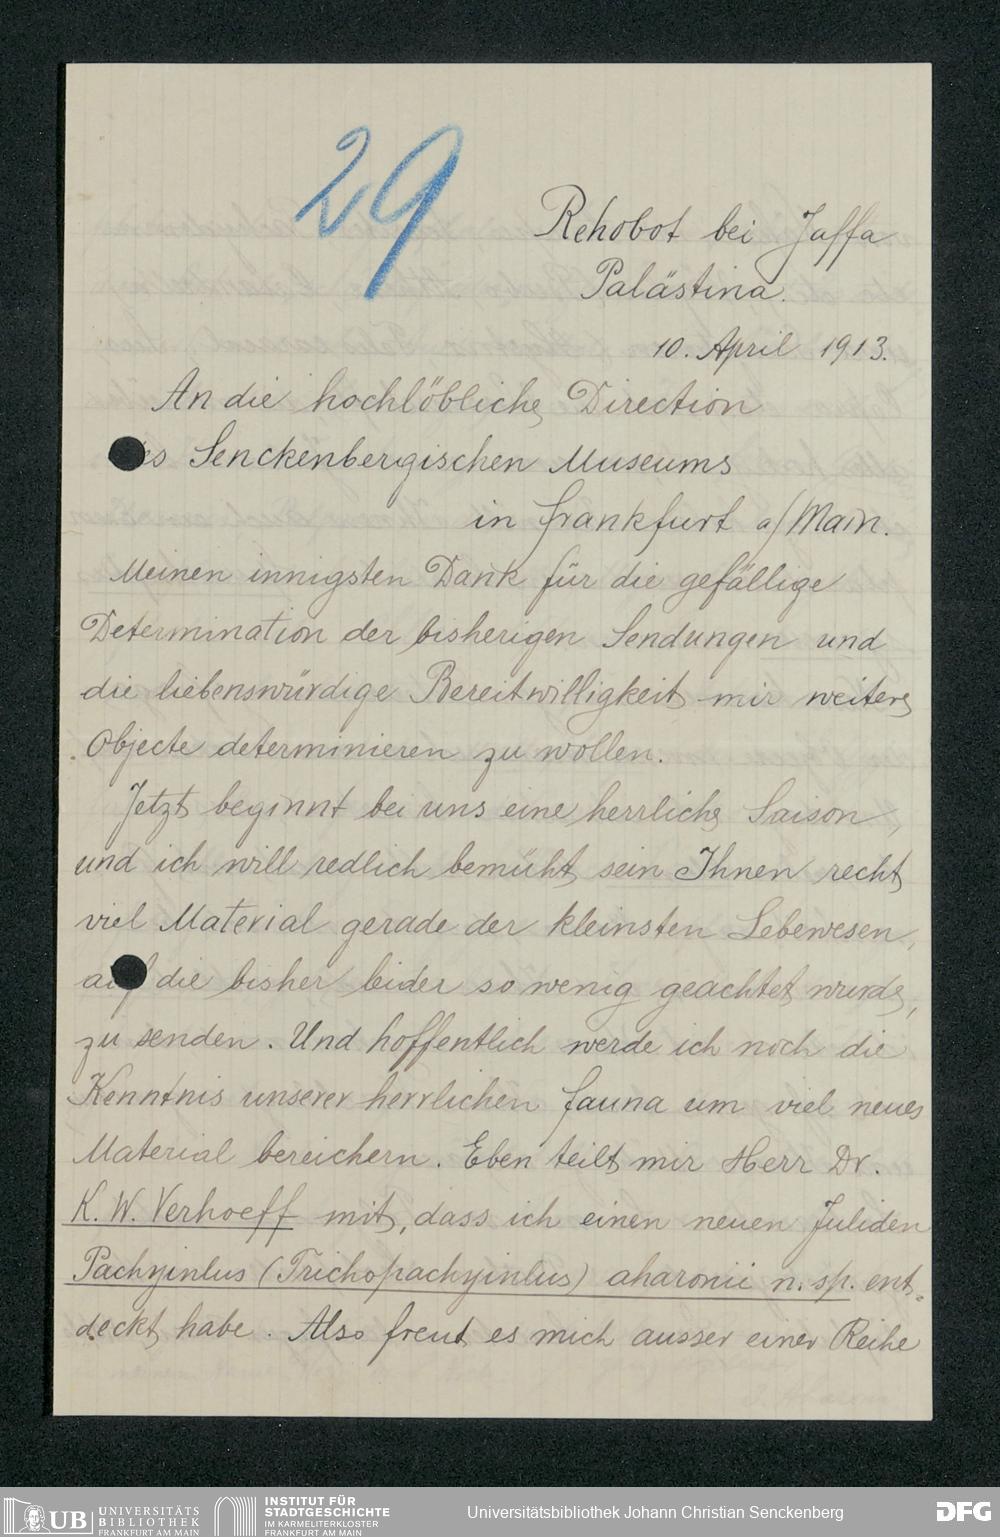 29
Rehobot bei Jaffa
Palästina.
10. April 1913.
An die hochlöbliche Direction
des Senckenbergischen Museums
in Frankfurt a/Main.
Meinen innigsten Dank für die gefällige
Determination der bisherigen Sendungen und
die liebenswürdige Bereitwilligkeit mir weitere
Objecte determinieren zu wollen.
Jetzt beginnt bei uns eine herrliche Saison,
und ich will redlich bemüht sein Ihnen recht
viel Material gerade der kleinsten Lebewesen,
auf die bisher leider so wenig geachtet wurde,
zu senden. Und hoffentlich werde ich noch die
Kenntnis unserer herrlichen Fauna um viel neues
Material bereichern. Eben teilt mir Herr Dr.
K. W. Verhoeff mit, dass ich einen neuen Juliden
Pachyiulus (Trichopachyiulus) aharonii n. sp. ent-
deckt habe. Also freut es mich ausser einer Reihe
UB UNIVERSITÄTS
BIBLIOTHEK
FRANKFURT AM MAIN
INSTITUT FÜR
STADTGESCHICHTE
IM KARMELITERKLOSTER
FRANKFURT AM MAIN
Universitätsbibliothek Johann Christian Senckenberg
DFG